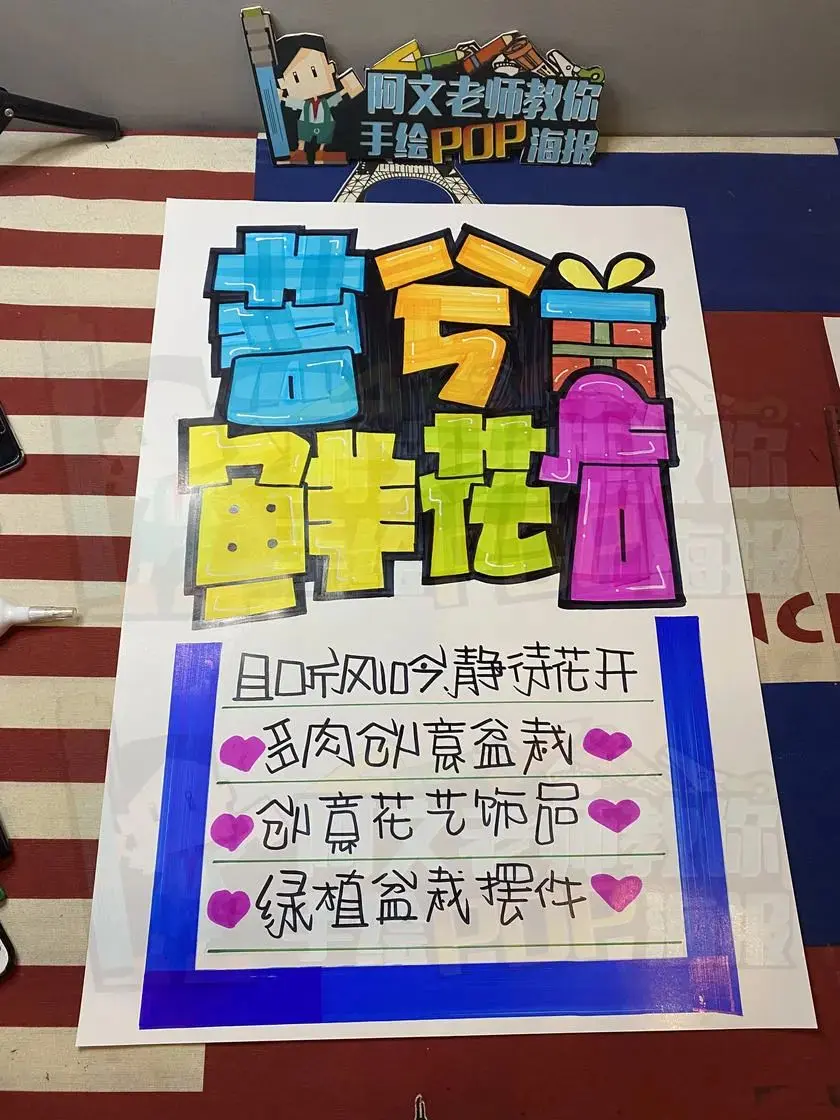 阿文老师教你
手绘POP海报
兮
鲜花店
且听风吟静待花开
多肉创意盆栽
创意花艺饰品
绿植盆栽摆件